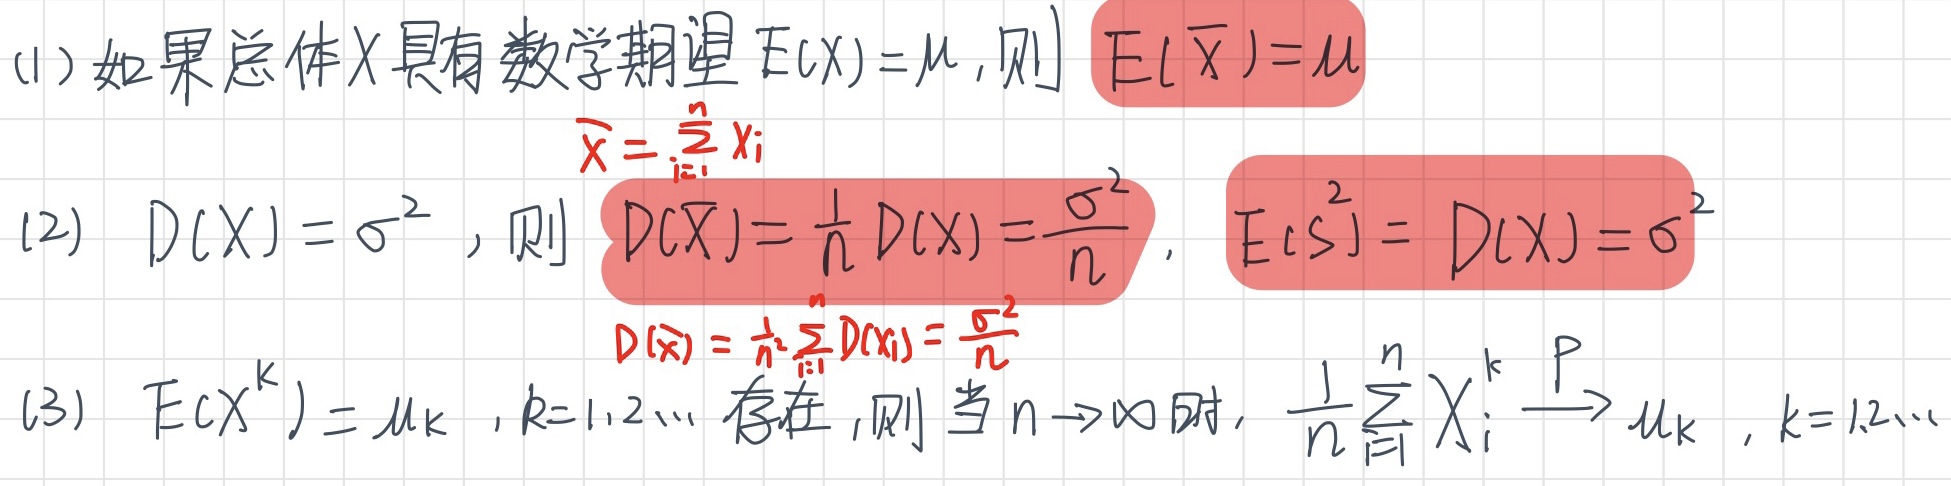 (1) 如果总体X具有数学期望 E(X)=μ,则 E(X̅)=μ
X̅ = ∑_{i=1}^{n} X_i
(2) D(X)=σ², 则 D(X̅)=1/n D(X)=σ²/n, E(S²)= D(X)=σ²
D(x̅) = 1/n² ∑_{i=1}^{n} D(X_i)= σ²/n
(3) E(X^k)=μ_k, k=1,2… 存在,则当 n→∞ 时, 1/n ∑_{i=1}^{n} X_i^k —P→ μ_k, k=1.2…